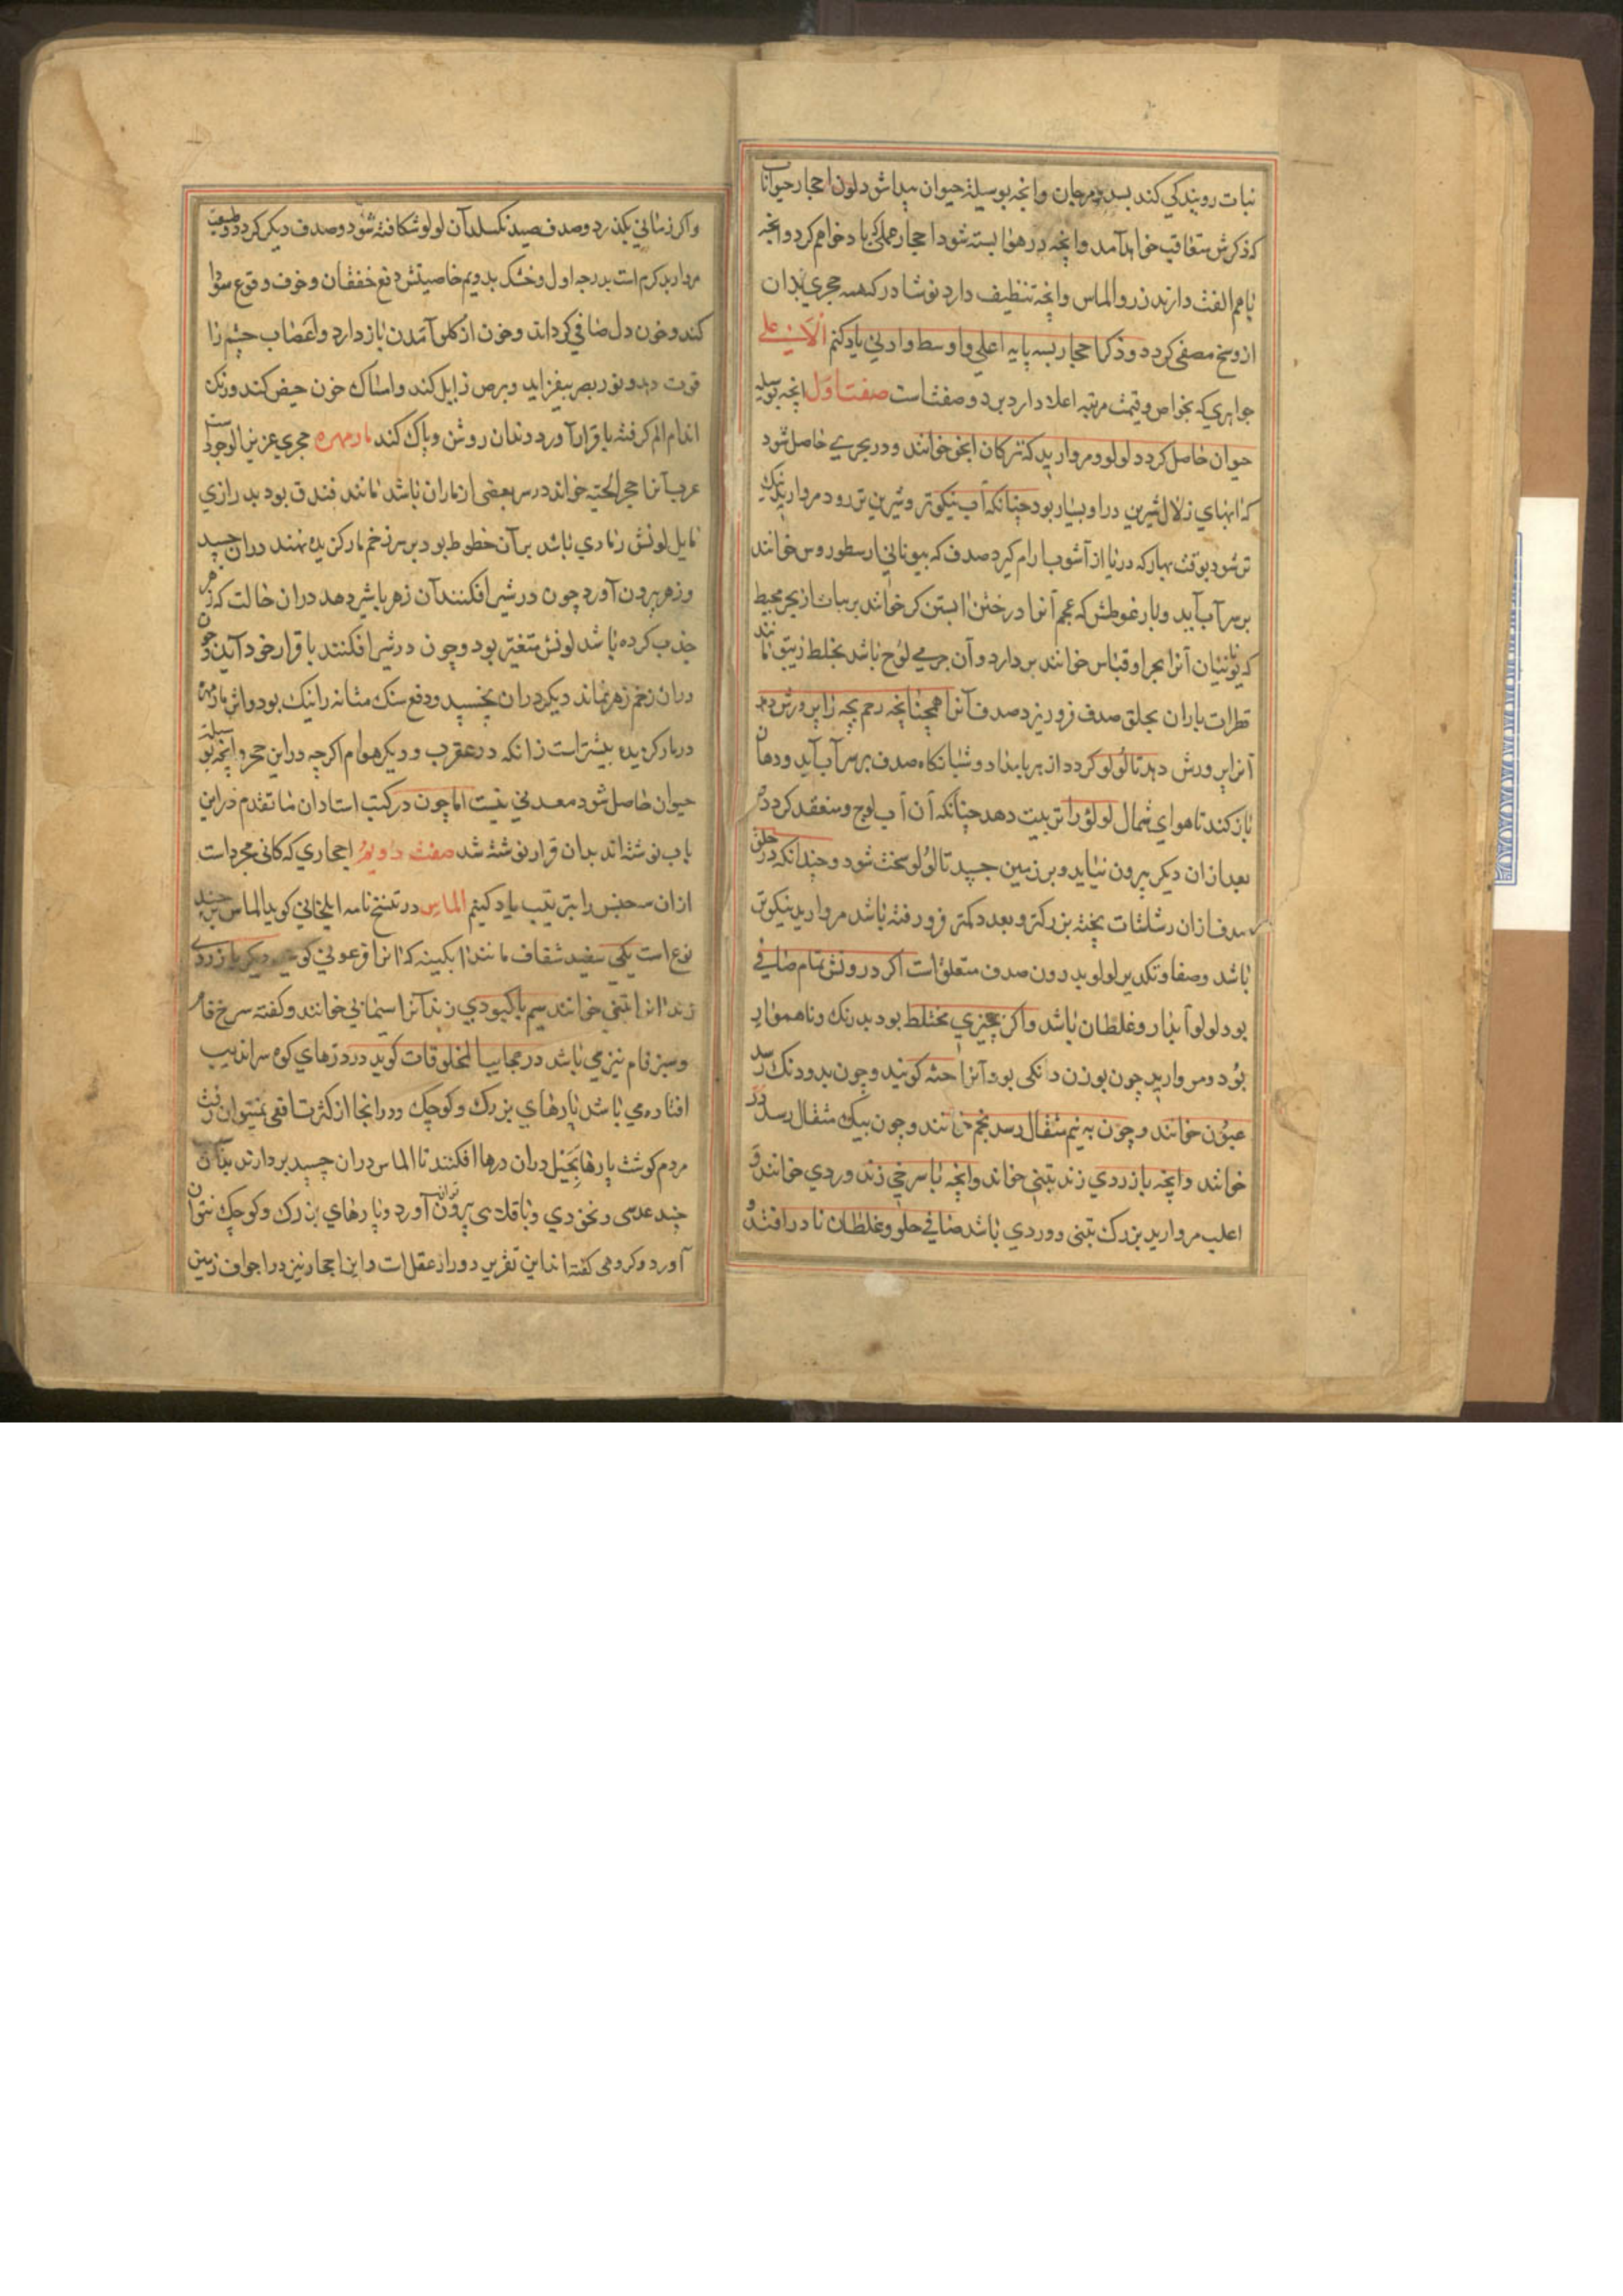 نبات رویندکی کند بسد و مرجان وانچه بوسیله حیوان پیدا شود لون احجار حیوانا
که ذکرش متعاقب خواهد آمد وانچه در هوا بسته شود احجار عملی که یاد خواهم کرد وانچه
باهم الفت دارند زر و الماس وانچه تنظیف دارد نوشادر که همه حجری بدان
از وسخ مصفی کردد و ذکر احجار بسه پایه اعلی و اوسط و ادنی یاد کنم الاعلی
جواهری که بخواص و قیمت مرتبه اعلا دارد بر دو صفتست صفت اول انچه بوسیله
حیوان حاصل کردد لولو و مروارید که ترکان اینجو خوانند و در بحری حاصل شود
که ابهای زلال شیرین درو بسیار بود چنانکه آب نیکوتر و شیرین تر رود مروارید نیک
تر شود بوقت بهار که دریا از آشوب با رام کیرد صدف که بیونانی ارسطوروس خوانند
بر سر آب آید و بار غوطش که عجم آنرا درختن ابستن کر خوانند بر نبات از بحر محیط
که یونانیان آنرا بحر اوقیاس خوانند بردارد و آن جرمی لزج باشد بخلط زیبق مانند
قطرات باران بحلق صدف فرو ریزد صدف آنرا همچنانچه رحم بچه را پرورش دهد
آنرا پرورش دهد تا لولو کردد از بر بامداد و شبانکاه صدف بر سر آب آید و دهان
باز کند تا هوای شمال لولو را تربیت دهد چنانکه آن آب لوج و منعقد کردد
بعد ازان دیکر بیرون نیاید و بر زمین چسپد تا لولو سخت شود و چندانکه در حلق
صدف ازان رشاشات پخته بزرکتر و بعدد کمتر فرو رفته باشد مروارید نیکوتر
باشد و صفا و تکدیر لولو بدرون صدف متعلق است اکر درونش تمام صافی
بود لولو آبدار و غلطان باشد واکر بچیزی مختلط بود بدرنک و ناهموار
بود و مروارید چون بوزن دانکی بود آنرا حبه کویند و چون بدو دنک رسد
عیون خوانند و چون به نیم مثقال رسد نجم خوانند و چون بیک مثقال رسد در
خوانند وانچه بازردی زند تبنی خواند وانچه باسرخی زند وردی خوانند و
اغلب مروارید بزرک تبنی و وردی باشد صافی حلو و غلطان نادر افتد و
واکر زمانی بکذرد و صدف صید نکسلد آن لولو شکافته شود و صدف دیکر کردد و طبیعت
مروارید کرم است بدرجه اول و خشک بدویم خاصیتش دفع خفقان و خوف و وقوع سودا
کند و خون دل صافی کرداند و خون از کلو آمدن باز دارد و اعصاب چشم را
قوت دهد و نور بصر بیفزاید و برص زایل کند و امساک خون حیض کند و رنک
اندام الم کرفته باقرار آورد و دندان روشن و پاک کند مارمهره حجری عزیز الوجود است
عرب آنرا حجر الحیه خواند در سر بعضی از ماران باشد مانند فندق بود بدرازی
مایل لونش رمادی باشد بر آن خطوط بود بر سر زخم مار کزیده نهند دران چسپد
و زهر بیرون آورد چون در شیر افکنند آن زهر باشیر دهد دران حالت که زهر
جذب کرده باشد لونش متغیر بود و چون در شیر افکنند باقرار خود آید و چون
دران زخم زهر نماند دیکر دران نچسپد و دفع سنک مثانه را نیک بود و اثر مارمهره
در مار کزیده بیشتر است زانکه در عقرب و دیکر هوام اکرچه در این حجر وانچه بوسیله
حیوان حاصل شود معدنی نیست اما چون در کتب استادان ما تقدم در این
باب نوشته اند بدان قرار نوشته شد صفت دویم احجاری که کانی مجرد است
ازان سه جنس را بترتیب یاد کنیم الماس در تنسخ نامه ایلخانی کوید الماس بر چند
نوع است یکی سفید شفاف مانند آبکینه که آنرا فرعونی کوید دیکر بازردی
زند آنرا تبنی خوانند سیم باکبودی زند آنرا اسمانی خوانند و کفته سرخ فام
و سبز فام نیز می باشد در عجایب المخلوقات کوید در درهای کوه سراندیب
افتاده می باشد پارهای بزرک و کوچک و در انجا از کثرت افعی نمیتوان رفت
مردم کوشت پارها بحیل دران درها افکنند تا الماس دران چسپد بردارند بدان
چند عدسی و نخودی و باقلی بیرون توان آورد و پارهای بزرک و کوچک نتوان
آورد و کروهی کفته اند این تقریر دور از عقل است و این احجار نیز در اجواف زمین